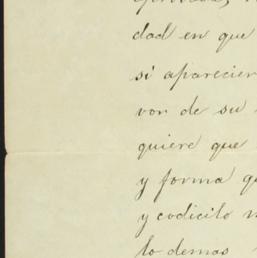 dad en que
si aparecier
vor de su
quiere que
y forma q
y codicilo
lo demas